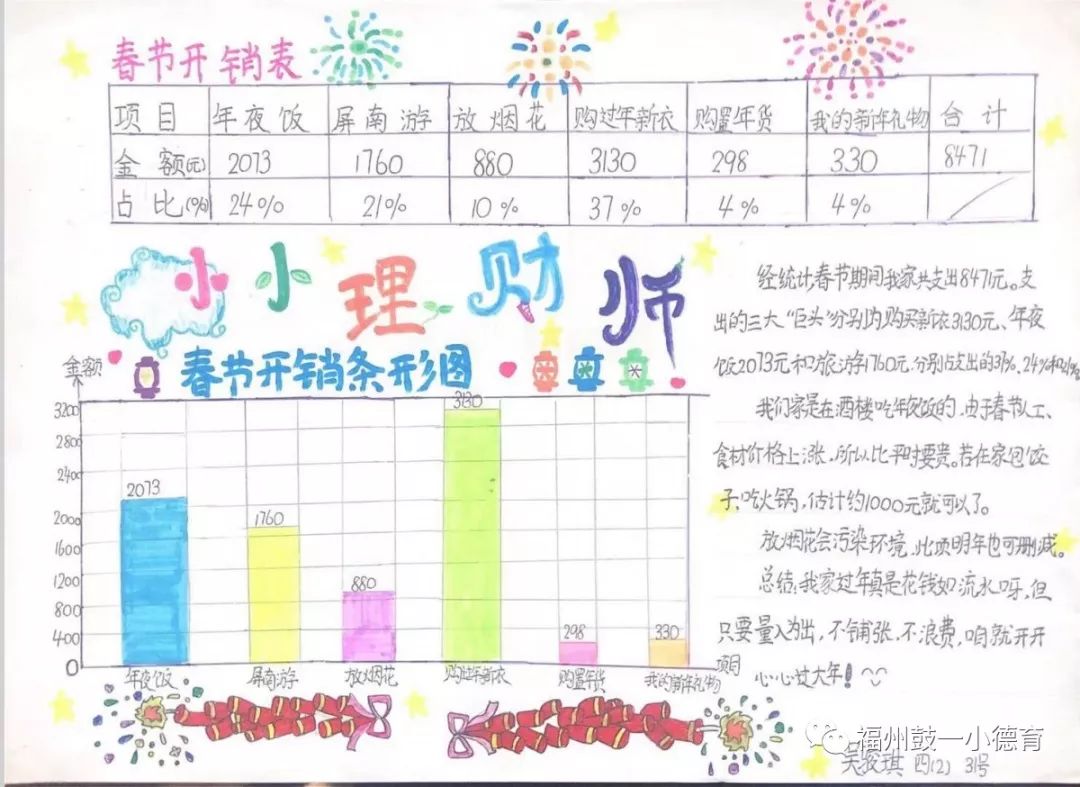 春节开销表
项目 年夜饭 屏南游 放烟花 购过年新衣 购置年货 我的新年礼物 合计
金额(元) 2073 1760 880 3130 298 330 8471
占比(%) 24% 21% 10% 37% 4% 4%
小小理财师
春节开销条形图
金额
3200
2800
2400
2000
1600
1200
800
400
0
2073
1760
880
3130
298
330
年夜饭 屏南游 放烟花 购过年新衣 购置年货 我的新年礼物
项目
经统计,春节期间我家共支出8471元。支
出的三大“巨头”分别为购买新衣3130元、年夜
饭2073元和旅游1760元,分别占支出的37%、24%和21%。
我们家是在酒楼吃年夜饭的,由于春节人工、
食材价格上涨,所以比平时要贵。若在家包饺
子、吃火锅,估计约1000元就可以了。
放烟花会污染环境,此项明年也可删减。
总结:我家过年真是花钱如流水呀,但
只要量入为出,不铺张,不浪费,咱就开开
心心过大年!
福州鼓一小德育
吴骏琪 四(2) 31号